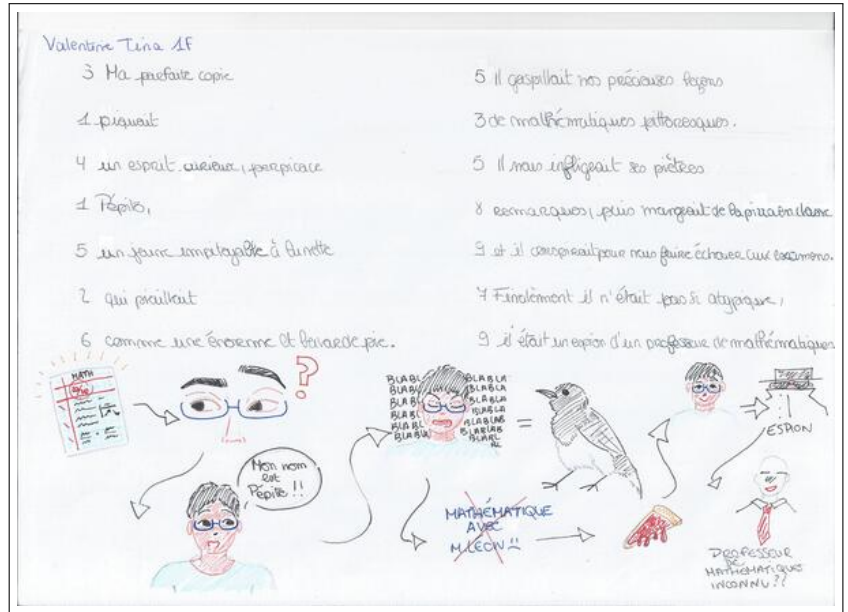 Valentine Tina 1F
3 Ma parfaite copie
1 piquait
4 un esprit curieux, perpicace
1 Pépito,
5 un jeune impitoyable à lunette
2 qui piaillait
6 comme une énorme et bavarde pie.
5 il gaspillait nos précieuses leçons
3 de mathématiques pittoresques.
5 Il nous infligeait ses piètres
8 remarques, puis mangeait de la pizza en classe
9 et il conspirait pour nous faire échouer aux examens.
7 Finalement il n'était pas si atypique,
9 il était un espion d'un professeur de mathématiques
MATH
?
Mon nom
est
Pépite !!
BLABLA
BLABLA
BLABLA
BLABLA
BLABLA
=
ESPION
MATHÉMATIQUE
AVEC
M.LEON
PROFESSEUR
DE
MATHÉMATIQUES
INCONNU ??